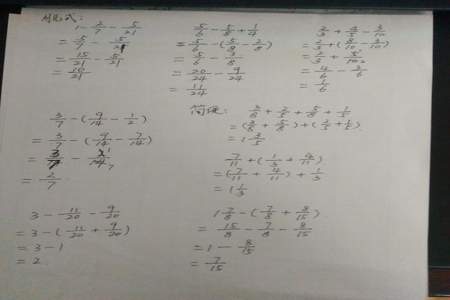 脱式:
1 - 2/7 - 5/21
= 5/7 - 5/21
= 15/21 - 5/21
= 10/21
5/6 - 5/8 + 1/4
= 5/6 - (5/8 - 2/8)
= 5/6 - 3/8
= 20/24 - 9/24
= 11/24
2/3 + 4/5 - 3/10
= 2/3 + (8/10 - 3/10)
= 2/3 + 5/10
= 4/6 - 3/6
= 1/6
3/7 - (9/14 - 1/2)
= 3/7 - (9/14 - 7/14)
= 3/7 - 2/14
= 2/7
简便:
3/8 + 2/5 + 5/8 + 1/5
= (3/8 + 5/8) + (2/5 + 1/5)
= 1 3/5
7/11 + (1/3 + 4/11)
= (7/11 + 4/11) + 1/3
= 1 1/3
3 - 11/20 - 9/20
= 3 - (11/20 + 9/20)
= 3 - 1
= 2
1 7/8 - (7/8 + 8/15)
= 15/8 - 7/8 - 8/15
= 1 - 8/15
= 7/15